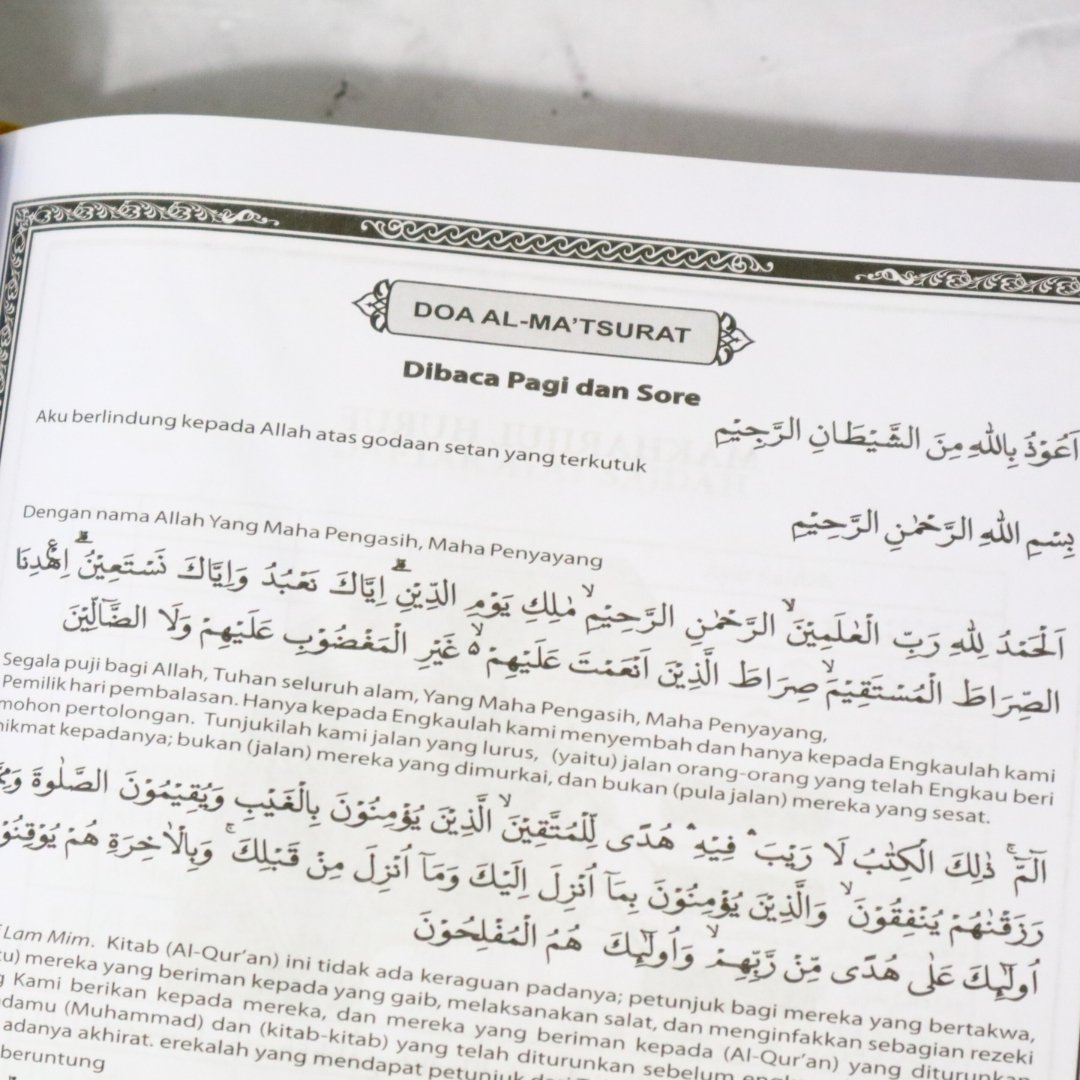 DOA AL-MA'TSURAT
Dibaca Pagi dan Sore
اَعُوْذُ بِاللّٰهِ مِنَ الشَّيْطَانِ الرَّجِيْمِ
Aku berlindung kepada Allah atas godaan setan yang terkutuk
بِسْمِ اللّٰهِ الرَّحْمٰنِ الرَّحِيْمِ
Dengan nama Allah Yang Maha Pengasih, Maha Penyayang
اَلْحَمْدُ لِلّٰهِ رَبِّ الْعٰلَمِيْنَۙ الرَّحْمٰنِ الرَّحِيْمِۙ مٰلِكِ يَوْمِ الدِّيْنِۗ اِيَّاكَ نَعْبُدُ وَاِيَّاكَ نَسْتَعِيْنُۗ اِهْدِنَا
الصِّرَاطَ الْمُسْتَقِيْمَۙ صِرَاطَ الَّذِيْنَ اَنْعَمْتَ عَلَيْهِمْ ۙ۵ غَيْرِ الْمَغْضُوْبِ عَلَيْهِمْ وَلَا الضَّاۤلِّيْنَ
Segala puji bagi Allah, Tuhan seluruh alam, Yang Maha Pengasih, Maha Penyayang,
Pemilik hari pembalasan. Hanya kepada Engkaulah kami menyembah dan hanya kepada Engkaulah kami
mohon pertolongan. Tunjukilah kami jalan yang lurus, (yaitu) jalan orang-orang yang telah Engkau beri
nikmat kepadanya; bukan (jalan) mereka yang dimurkai, dan bukan (pula jalan) mereka yang sesat.
الۤمّۤۚ ذٰلِكَ الْكِتٰبُ لَا رَيْبَۛ فِيْهِۛ هُدًى لِّلْمُتَّقِيْنَۙ الَّذِيْنَ يُؤْمِنُوْنَ بِالْغَيْبِ وَيُقِيْمُوْنَ الصَّلٰوةَ
رَزَقْنٰهُمْ يُنْفِقُوْنَۙ وَالَّذِيْنَ يُؤْمِنُوْنَ بِمَآ اُنْزِلَ اِلَيْكَ وَمَآ اُنْزِلَ مِنْ قَبْلِكَۚ وَبِالْاٰخِرَةِ هُمْ
اُولٰۤىِٕكَ عَلٰى هُدًى مِّنْ رَّبِّهِمْۙ وَاُولٰۤىِٕكَ هُمُ الْمُفْلِحُوْنَ
Lam Mim. Kitab (Al-Qur'an) ini tidak ada keraguan padanya; petunjuk bagi mereka yang bertakwa,
mereka yang beriman kepada yang gaib, melaksanakan salat, dan menginfakkan sebagian rezeki
Kami berikan kepada mereka, dan mereka yang beriman kepada (Al-Qur'an) yang diturunkan
(Muhammad) dan (kitab-kitab) yang telah diturunkan sebelum
adanya akhirat. erekalah yang mendapat petunjuk
beruntung